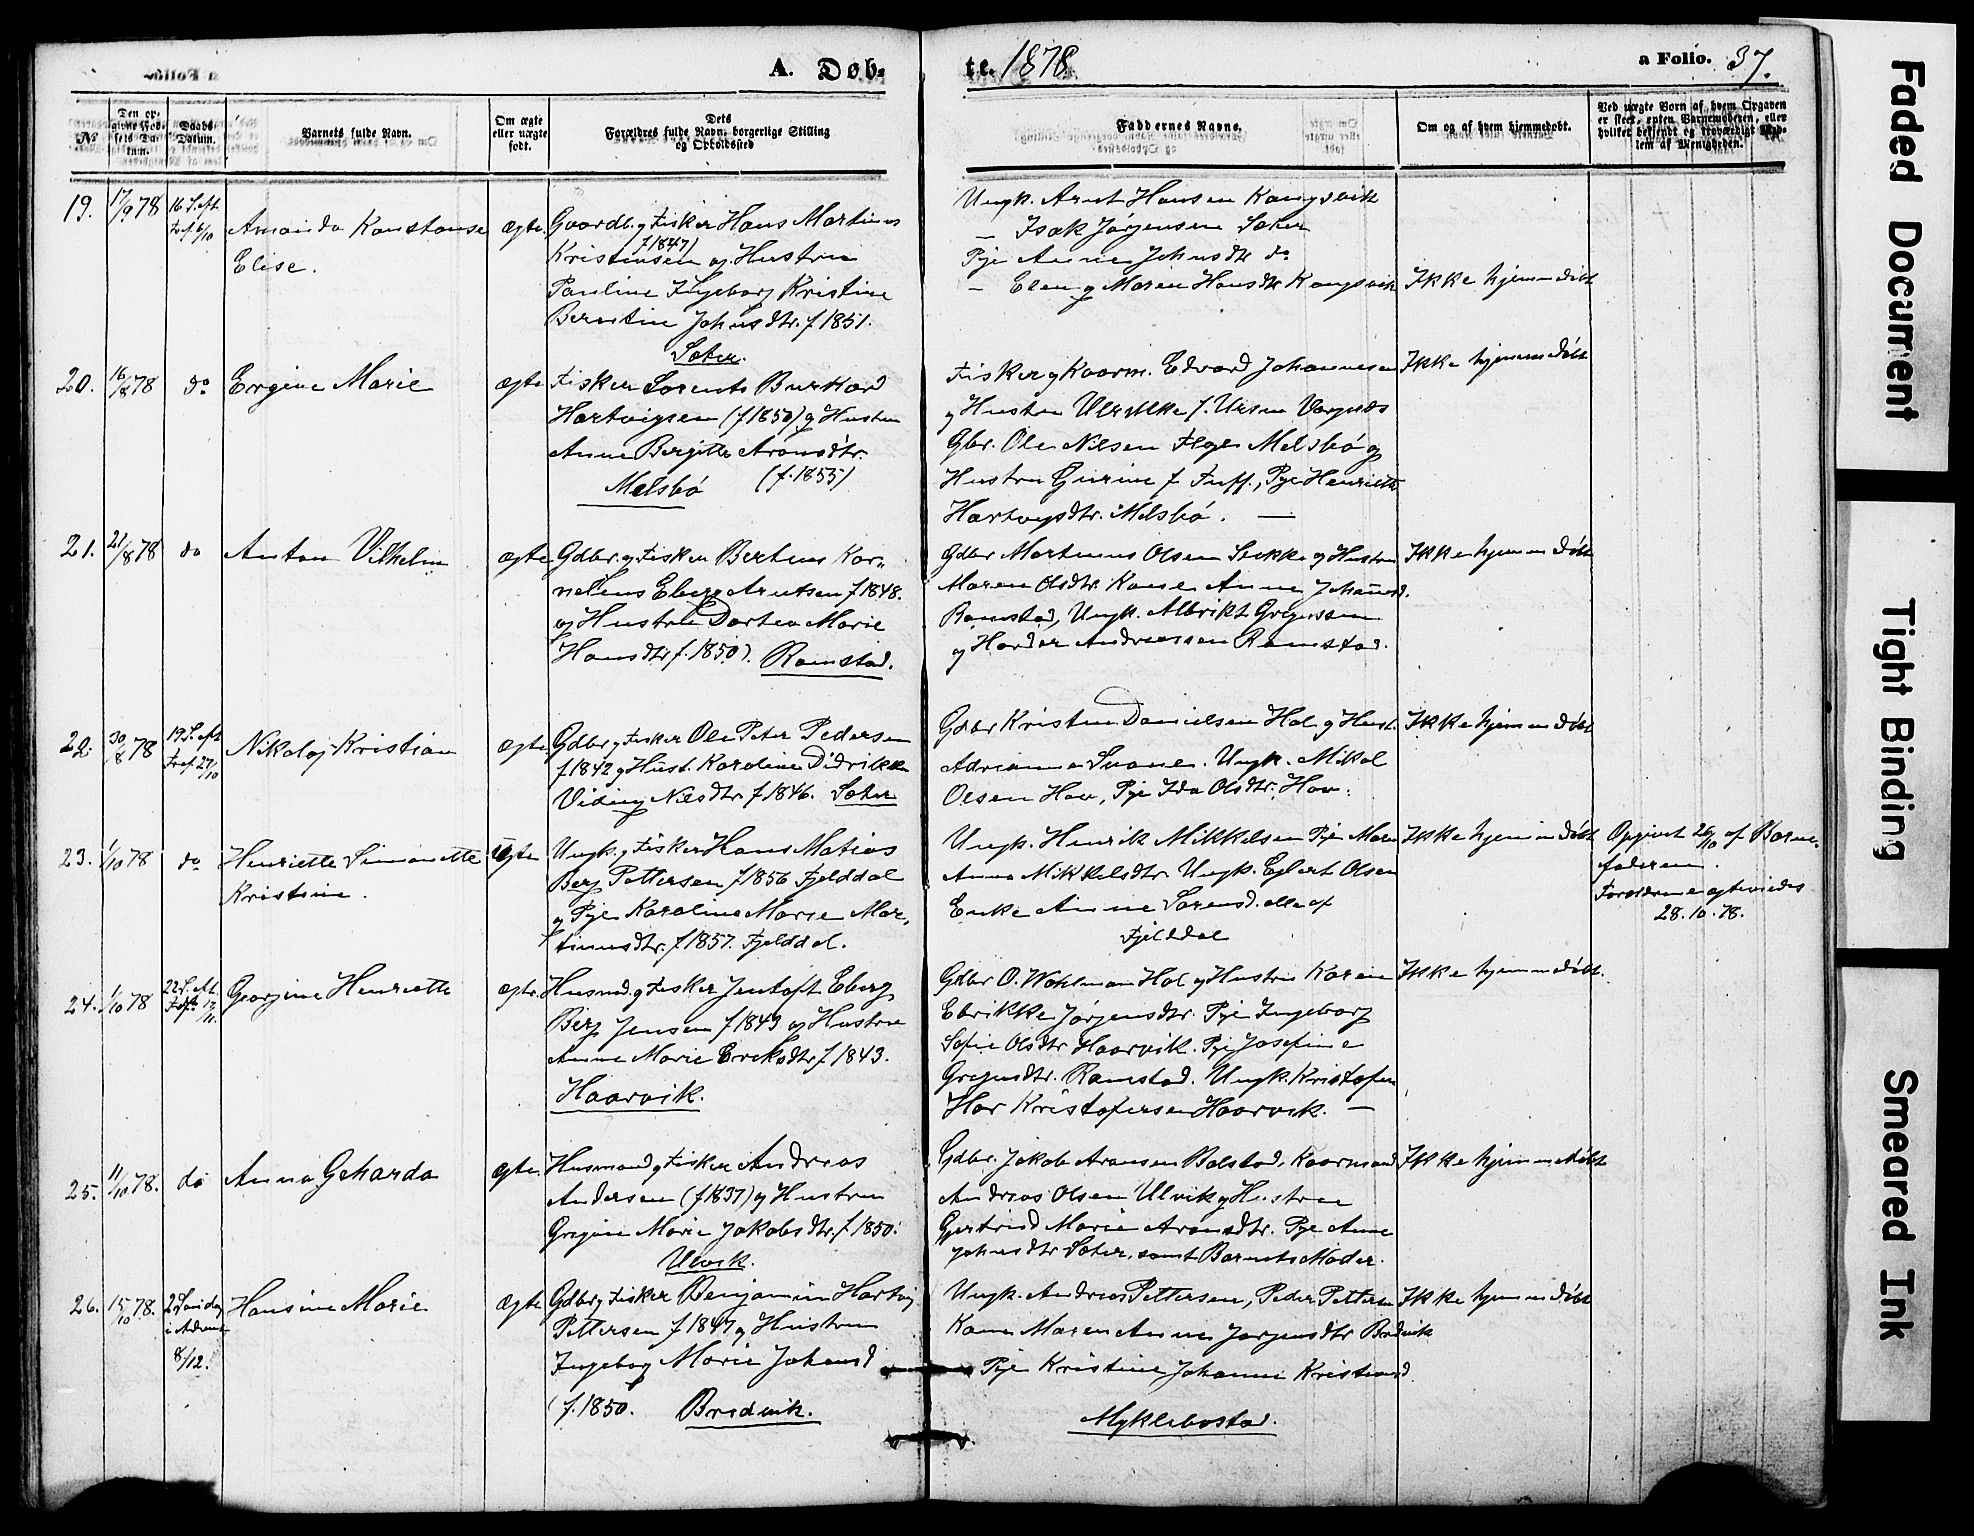 A. Døb-
te. 1878
a Folio. 37.
№
Den op-
givne Fød-
sels Da-
tum.
Daabs-
Datum.
Barnets fulde Navn.
Om ægte
eller uægte
født.
Dets
Forældres fulde Navn, borgerlige Stilling
og Opholdssted
Faddernes Navne.
Om og af hvem hjemmedøbt.
Ved uægte Børn af hvem Opgaven
er skeet, enten Barnemoderen, eller
hvilket bekjendt og troværdigt Med-
lem af Menigheden.
19.
17/9 78
16 S. eft.
Tref. 6/10
Amanda Konstanse
Elise.
ægte.
Gaardb. og Fisker Hans Martinus
f 1847)
Kristensen og Hustru
Pauline Ingeborg Kristine
Berntine Johnsdtr. f 1851.
Sæter.
Ungk. Arnt Hansen Kongsvik
— Isak Jørgensen Sæter
Pige Anne Johnsdtr do
— Elen og Maren Hansdtr Kongsvik
Ikke hjemmedöbt
20.
16/8 78
do
Ergine Marie
ægte
Fisker Lorents Burkard
Hartvigsen (f 1850) og Hustru
Anne Bergitte Aronsdtr.
(f. 1855)
Melsbö
Fisker og Kaarm. Edvard Johannesen
og Hustru Ulrikke f. Ursin
Gbr. Ole Nilsen Melsbö og
Hustru Gurine f Fuff., Pige Henriette
Hartvigsdtr. Melsbö. —
Ikke hjemmedöbt
21.
21/8 78
do
Anton Vilhelm
ægte
Gdbr. og Fisker Berteus Kor-
nelius Eberg Arntsen f 1848.
og Hustru Dortea Marie
Hansdtr f. 1850). Ramstad.
Gdbr Martinus Olsen og Hustru
Maren Olsdtr. Kone Anne Johansd.
Ramstad, Ungk. Albrikt Gregersen
og Hardar Andreassen Ramstad.
Ikke hjemmedöbt
22.
30/8 78
19. S. eft.
Tref. 27/10
Nikolaj Kristian
ægte
Gdbr. og Fisker Ole Peter Pedersen
f 1842 og Hust. Karoline Didrikke
Viding Nilsdtr f 1846. Sæter
Gdbr Kristen Danielsen Hol og Hust.
Adriana Svane. Ungk. Mikal
Olsen Hov, Pige Ida Olsdtr. Hov.
Ikke hjemmedöbt
23.
1/10 78
do
Henriette Simonette
Kristine.
uægte
Ungk. og Fisker Hans Matias
Berg Pettersen f 1856 Fjelddal
og Pige Karoline Marie Mar-
tinusdtr. f 1857. Fjelddal.
Ungk. Henrik Mikkelsen Pige Maren
Anna Mikkelsdtr Ungk. Egbert Olsen
Enke Anne Sorensd. alle af
Fjelddal
Ikke hjemmedöbt
Opgivet 26/10 af Barne-
faderen.
Foraldrene ægteviedes
28.10.78.
24.
1/10 78
22 S. eft.
Tref. 17/11.
Georgine Henriette
ægte.
Husmd. og Fisker Jentoft Eberg
Berg Jensen f 1843 og Hustru
Anne Marie Ereksdtr f 1843.
Haarvik.
Gdbr O. Wohlman Hol og Hustru Karen
Ebrikke Jørgensdtr. Pige Ingeborg
Sofie Olsdtr Haarvik. Pige Josefine
Gregusdtr. Ramstad. Ungk. Kristofer
Hor Kristofersen Haarvik. —
Ikke hjemmedöbt.
25.
11/10 78.
do
Anna Geharda
ægte.
Husmand og Fisker Andreas
Andersen (f 1837) og Hustru
Gregine Marie Jakobsdtr. f. 1850.
Ulvik.
Gdbr. Jakob Aronsen Bolstad, Kaarmand
Andreas Olsen Ulvik og Hustru
Gjertrud Marie Aronsdtr. Pige Anne
Johnsdtr Sæter, samt Barnets Moder.
Ikke hjemmedöbt
26.
15/10 78.
2 Söndag
i Advent
8/12.
Hansine Marie
ægte
Gdbr og Fisker Benjamin Hartvig
Pettersen f 1847 og Hustru
Ingeborg Marie Johansd
(f. 1850. Bredvik.
Ungk. Andreas Pettersen, Peder Pettersen
Kone Maren Anne Jørgensdtr Bredvik
Pige Kristine Johanne Kristensd
Myklebostad.
Ikke hjemmedöbt
Faded Document
Tight Binding
Smeared Ink